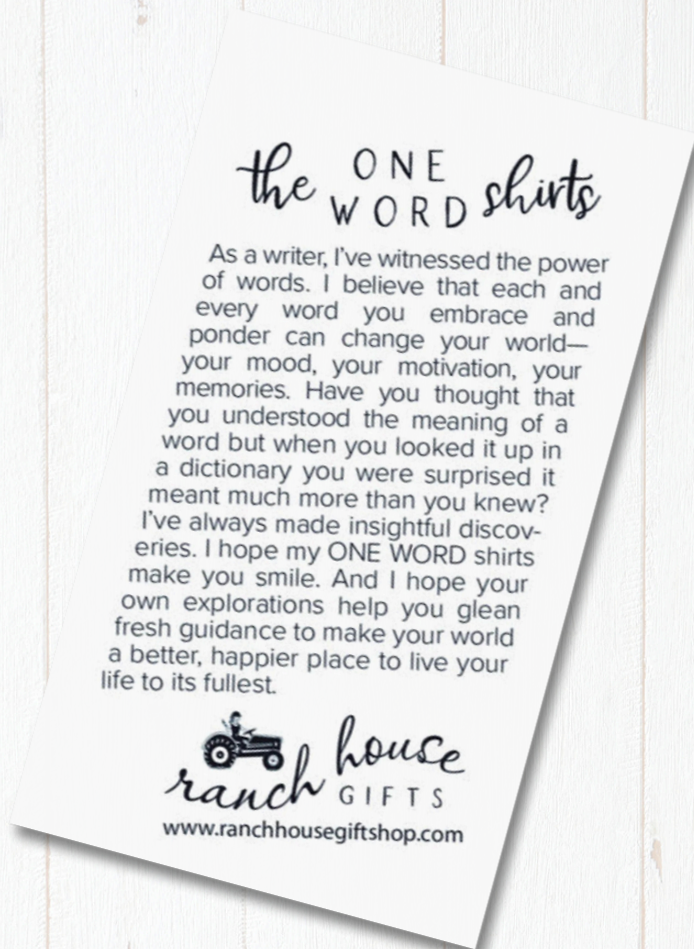 the ONE WORD shirts
As a writer, I've witnessed the power
of words. I believe that each and
every word you embrace and
ponder can change your world—
your mood, your motivation, your
memories. Have you thought that
you understood the meaning of a
word but when you looked it up in
a dictionary you were surprised it
meant much more than you knew?
I've always made insightful discov-
eries. I hope my ONE WORD shirts
make you smile. And I hope your
own explorations help you glean
fresh guidance to make your world
a better, happier place to live your
life to its fullest.
ranch house
GIFTS
www.ranchhousegiftshop.com